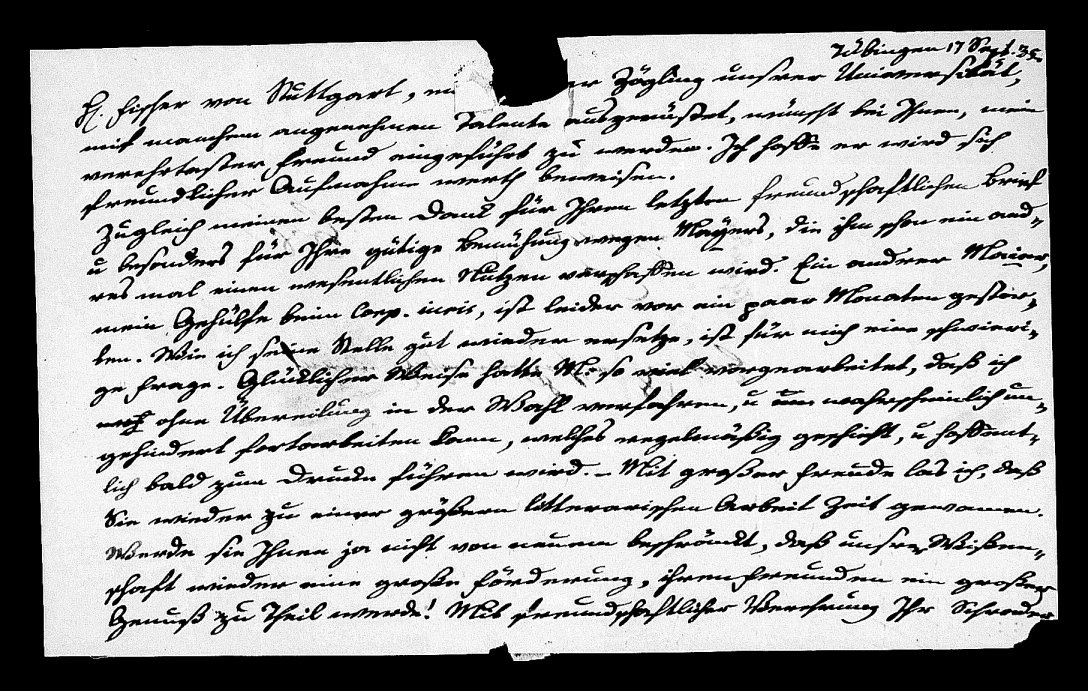 Tübingen 17 Sept. 35.
H. Fischer von Stuttgart, er Zögling unsrer Universität,
mit manchem angenehmen Talente ausgerüstet, wünscht bei Ihnen, mein
verehrtester Freund eingeführt zu werden. Ich hoffe er wird sich
freundlicher Aufnahme werth beweisen.
Zugleich meinen besten Dank für Ihren letzten freundschaftlichen Brief
u besonders für Ihre gütige Bemühung wegen Mayers, die ihm schon ein and-
res mal einen wesentlichen Nutzen verschaffen wird. Ein andrer Maier,
mein Gehülfe beim Corp. iuris, ist leider vor ein paar Monaten gestor-
ben. Wie ich seine Stelle gut wieder ersetze, ist für mich eine schwieri-
ge Frage. Glücklicher Weise hatte M. so viel vorgearbeitet, daß ich
ohne Übereilung in der Wahl verfahren, u wahrscheinlich un-
gehindert fortarbeiten kann, welches regelmäßig geschieht, u hoffent-
lich bald zum Drucke führen wird. - Mit großer Freude las ich, daß
Sie wieder zu einer größern litterarischen Arbeit Zeit gewannen.
Werde sie Ihnen ja nicht von neuem beschränkt, daß unsrer Wißen-
schaft wieder eine große Förderung, ihren Freunden ein großer
Genuß zu Theil werde! Mit freundschaftlicher Verehrung Ihr Schrader